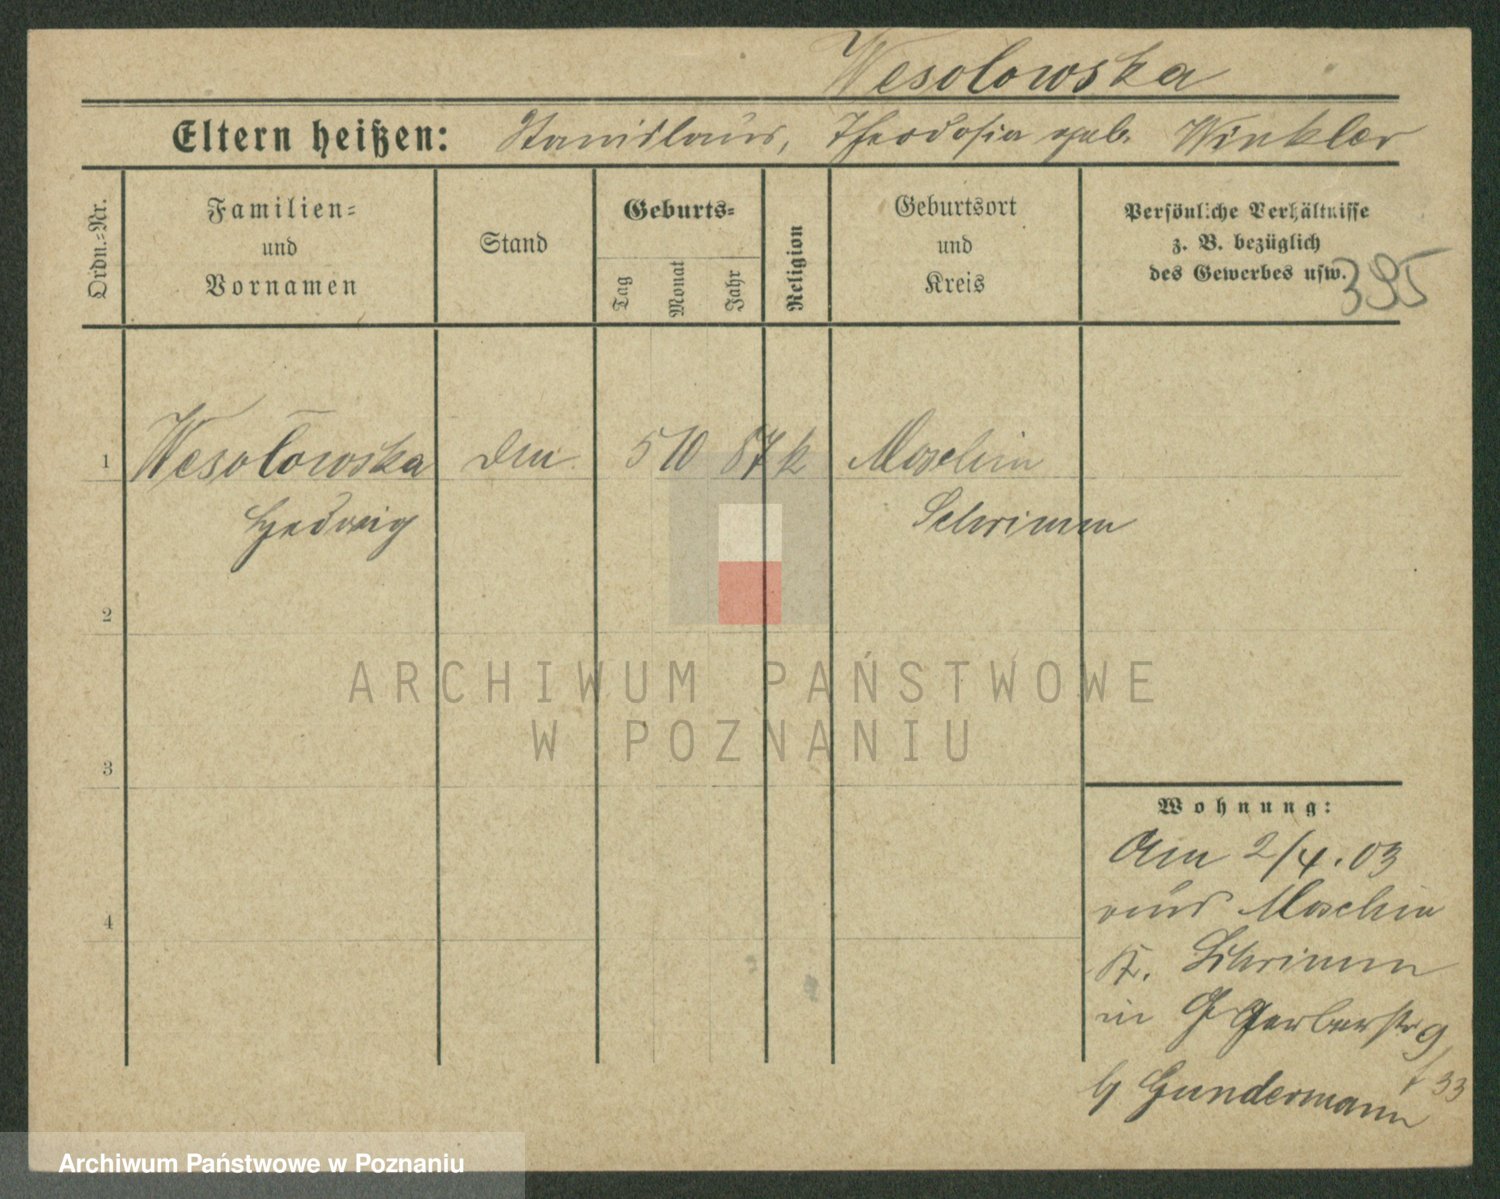 Wesolowska
Eltern heißen: Stanislaus, Theodosia geb. Winkler
Ordn.-Nr.
Familien-
und
Vornamen
Stand
Geburts-
Tag
Monat
Jahr
Religion
Geburtsort
und
Kreis
Persönliche Verhältnisse
z. B. bezüglich
des Gewerbes usw.
395
1 Wesolowska 5 10 87 k Moschin
Hedwig Schrimm
2
3
4
Wohnung:
Am 2/4. 03
aus Moschin
K. Schrimm
in G Gerberstr 9
b/ Gundermann
33
ARCHIWUM PAŃSTWOWE
W POZNANIU
Archiwum Państwowe w Poznaniu